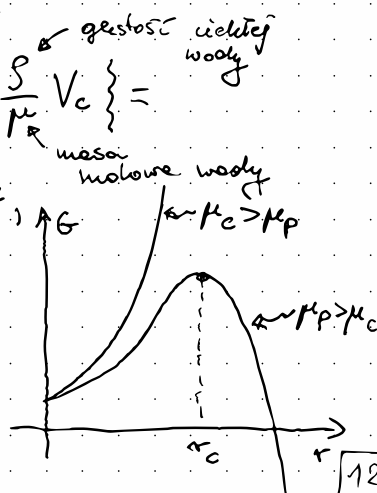 gęstość ciekłej
wody
ρ/μ V_c } =
masa
molowa wody
G
μ_c > μ_p
μ_p > μ_c
r_c
r
12